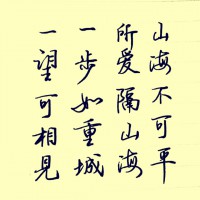 山海不可平
所爱隔山海
一步如重城
一望可相見